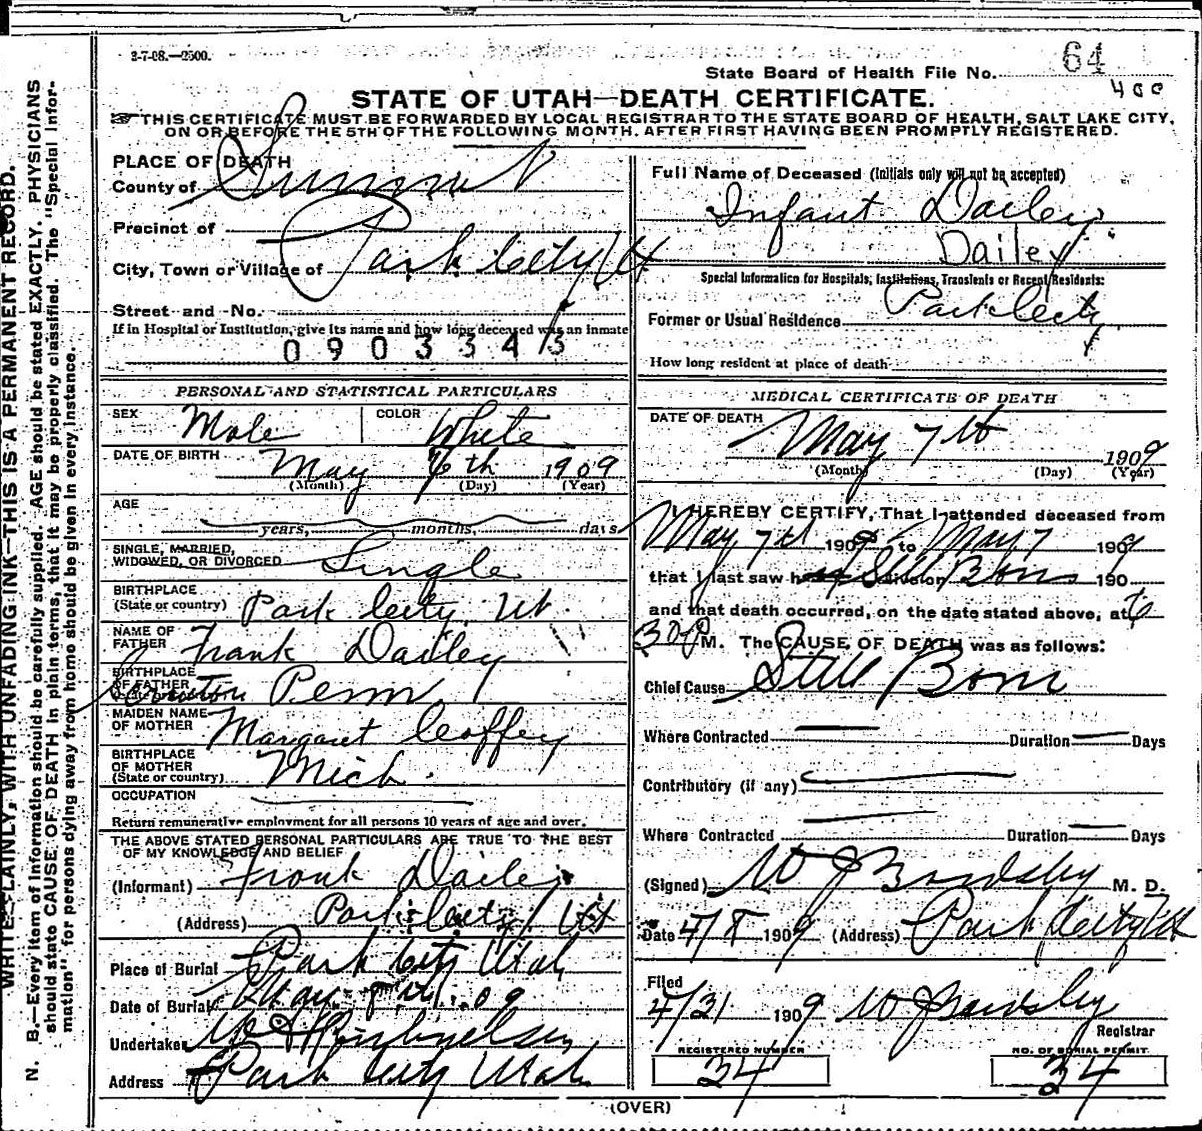 2-7-08.—2500.
State Board of Health File No. 64
400
STATE OF UTAH—DEATH CERTIFICATE.
THIS CERTIFICATE MUST BE FORWARDED BY LOCAL REGISTRAR TO THE STATE BOARD OF HEALTH, SALT LAKE CITY,
ON OR BEFORE THE 5TH OF THE FOLLOWING MONTH. AFTER FIRST HAVING BEEN PROMPTLY REGISTERED.
WRITE PLAINLY, WITH UNFADING INK—THIS IS A PERMANENT RECORD.
N. B.—Every item of Information should be carefully supplied. AGE should be stated EXACTLY. PHYSICIANS
should state CAUSE OF DEATH in plain terms, that it may be properly classified. The "Special Infor-
mation" for persons dying away from home should be given in every instance.
PLACE OF DEATH
County of Summit
Precinct of
City, Town or Village of Park City Ut
Street and No.
If in Hospital or Institution, give its name and how long deceased was an inmate
0903345
PERSONAL AND STATISTICAL PARTICULARS
SEX Male COLOR White
DATE OF BIRTH May 7th 1909
(Month) (Day) (Year)
AGE
years, months, days
SINGLE, MARRIED,
WIDOWED, OR DIVORCED Single
BIRTHPLACE
(State or country) Park City Ut.
NAME OF
FATHER Frank Dailey
BIRTHPLACE
OF FATHER
Penn
MAIDEN NAME
OF MOTHER Margaret Coffey
BIRTHPLACE
OF MOTHER
(State or country) Mich.
OCCUPATION
Return remunerative employment for all persons 10 years of age and over.
THE ABOVE STATED PERSONAL PARTICULARS ARE TRUE TO THE BEST
OF MY KNOWLEDGE AND BELIEF
(Informant) Frank Dailey
(Address) Park City Ut
Place of Burial Park City Utah
Date of Burial May 8th 09
Undertaker
Address Park City Utah
Full Name of Deceased (Initials only will not be accepted)
Infant Dailey
Dailey
Special Information for Hospitals, Institutions, Transients or Recent Residents:
Former or Usual Residence Park City
How long resident at place of death
MEDICAL CERTIFICATE OF DEATH
DATE OF DEATH May 7th 1909
(Month) (Day) (Year)
I HEREBY CERTIFY, That I attended deceased from
May 7th 1909 to May 7 1909
that I last saw h Still Born 190
and that death occurred, on the date stated above, at 6
30 P M. The CAUSE OF DEATH was as follows:
Chief Cause Still Born
Where Contracted Duration Days
Contributory (if any)
Where Contracted Duration Days
(Signed) W J Bardsley M. D.
Date 4/8 1909 (Address) Park City Ut
Filed
4/31 1909 W J Bardsley
Registrar
REGISTERED NUMBER
34
NO. OF BURIAL PERMIT
34
(OVER)